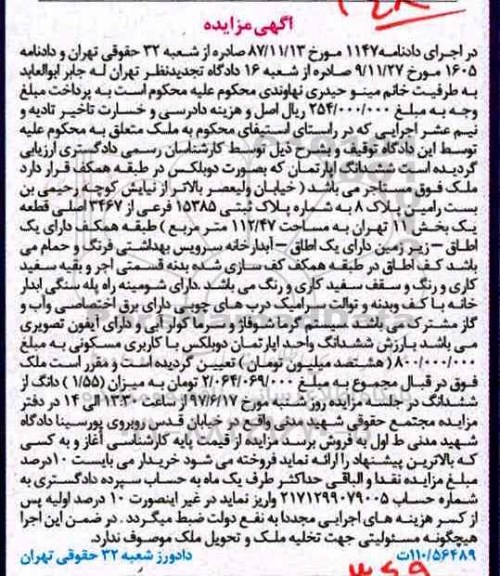 آگهی مزایده
در اجرای دادنامه ۱۱۴۷ مورخ ۸۷/۱۱/۱۳ صادره از شعبه ۳۲ حقوقی تهران و دادنامه
۱۶۰۵ مورخ ۹/۱۱/۲۷ صادره از شعبه ۱۶ دادگاه تجدیدنظر تهران له جابر ابوالعابد
به طرفیت خانم مینو حیدری نهاوندی محکوم علیه محکوم است به پرداخت مبلغ
وجه به مبلغ ۲۵۴/۰۰۰/۰۰۰ ریال اصل و هزینه دادرسی و خسارت تاخیر تادیه و
نیم عشر اجرایی که در راستای استیفای محکوم به ملک متعلق به محکوم علیه
توسط این دادگاه توقیف و بشرح ذیل توسط کارشناسان رسمی دادگستری ارزیابی
گردیده است ششدانگ اپارتمان که بصورت دوبلکس در طبقه همکف قرار دارد
ملک فوق مستاجر می باشد ( خیابان ولیعصر بالاتر از نیایش کوچه رحیمی بن
بست رامین پلاک ۸ به شماره پلاک ثبتی ۱۵۳۸۵ فرعی از ۳۴۶۷ اصلی قطعه
یک بخش ۱۱ تهران به مساحت ۱۱۲/۴۷ متر مربع ) طبقه همکف دارای یک
اطاق – زیرزمین دارای یک اطاق – آبدارخانه سرویس بهداشتی فرنگ و حمام می
باشد کف اطاق در طبقه همکف کف سازی شده بدنه قسمتی اجر و بقیه سفید
کاری و رنگ و سقف سفید کاری و رنگ می باشد .دارای شومینه راه پله سنگی ابدار
خانه با کف وبدنه و توالت سرامیک درب های چوبی دارای برق اختصاصی وآب و
گاز مشترک می باشد .سیستم گرما شوفاژ و سرما کولر آبی و دارای آیفون تصویری
می باشد بارزش ششدانگ واحد اپارتمان دوبلکس با کاربری مسکونی به مبلغ
۸۰۰/۰۰۰/۰۰۰ ( هشتصد میلیون تومان) تعیین گردیده است و مقرر است ملک
فوق در قبال مجموع به مبلغ ۲/۰۶۴/۰۶۹/۰۰۰ تومان به میزان (۱/۵۵ ) دانگ از
ششدانگ در جلسه مزایده روز شنبه مورخ ۹۷/۶/۱۷ از ساعت ۱۳:۳۰ الی ۱۴ در دفتر
مزایده مجتمع حقوقی شهید مدنی واقع در خیابان قدس روبروی پورسینا دادگاه
شهید مدنی ط اول به فروش برسد.مزایده از قیمت پایه کارشناسی آغاز و به کسی
که بالاترین پیشنهاد را ارائه نماید فروخته می شود خریدار می بایست ۱۰درصد
مبلغ مزایده نقدا و الباقی حداکثر ظرف یک ماه به حساب سپرده دادگستری به
شماره حساب ۲۱۷۱۲۹۹۰۷۹۰۰۵ واریز نماید در غیر اینصورت ۱۰ درصد اولیه پس
از کسر هزینه های اجرایی مجددا به نفع دولت ضبط میگردد . در ضمن این اجرا
هیچگونه مسئولیتی جهت تخلیه ملک و تحویل ملک موصوف ندارد.
۱۱۰/۵۶۴۸۹ت دادورز شعبه ۳۲ حقوقی تهران